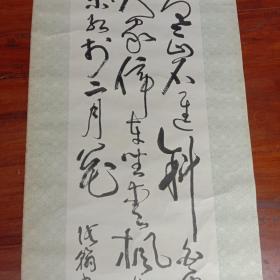 寒山石径斜白
人家停车坐爱枫
葉红于二月花